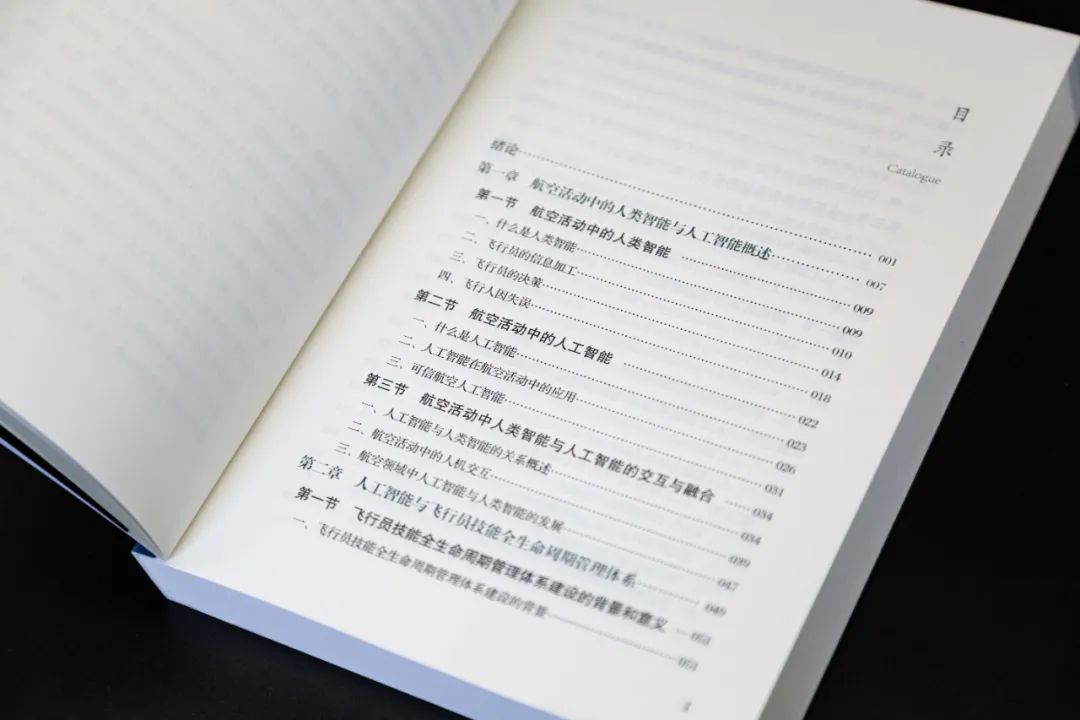 目
录
Catalogue
绪论……001
第一章 航空活动中的人类智能与人工智能概述……007
第一节 航空活动中的人类智能……009
一、什么是人类智能……009
二、飞行员的信息加工……010
三、飞行员的决策……014
四、飞行人因失误……018
第二节 航空活动中的人工智能……022
一、什么是人工智能……023
二、人工智能在航空活动中的应用……026
三、可信航空人工智能……031
第三节 航空活动中人类智能与人工智能的交互与融合……034
一、人工智能与人类智能的关系概述……034
二、航空活动中的人机交互……039
三、航空领域中人工智能与人类智能的发展……047
第二章 人工智能与飞行员技能全生命周期管理体系……049
第一节 飞行员技能全生命周期管理体系建设的背景和意义……051
一、飞行员技能全生命周期管理体系建设的背景……051